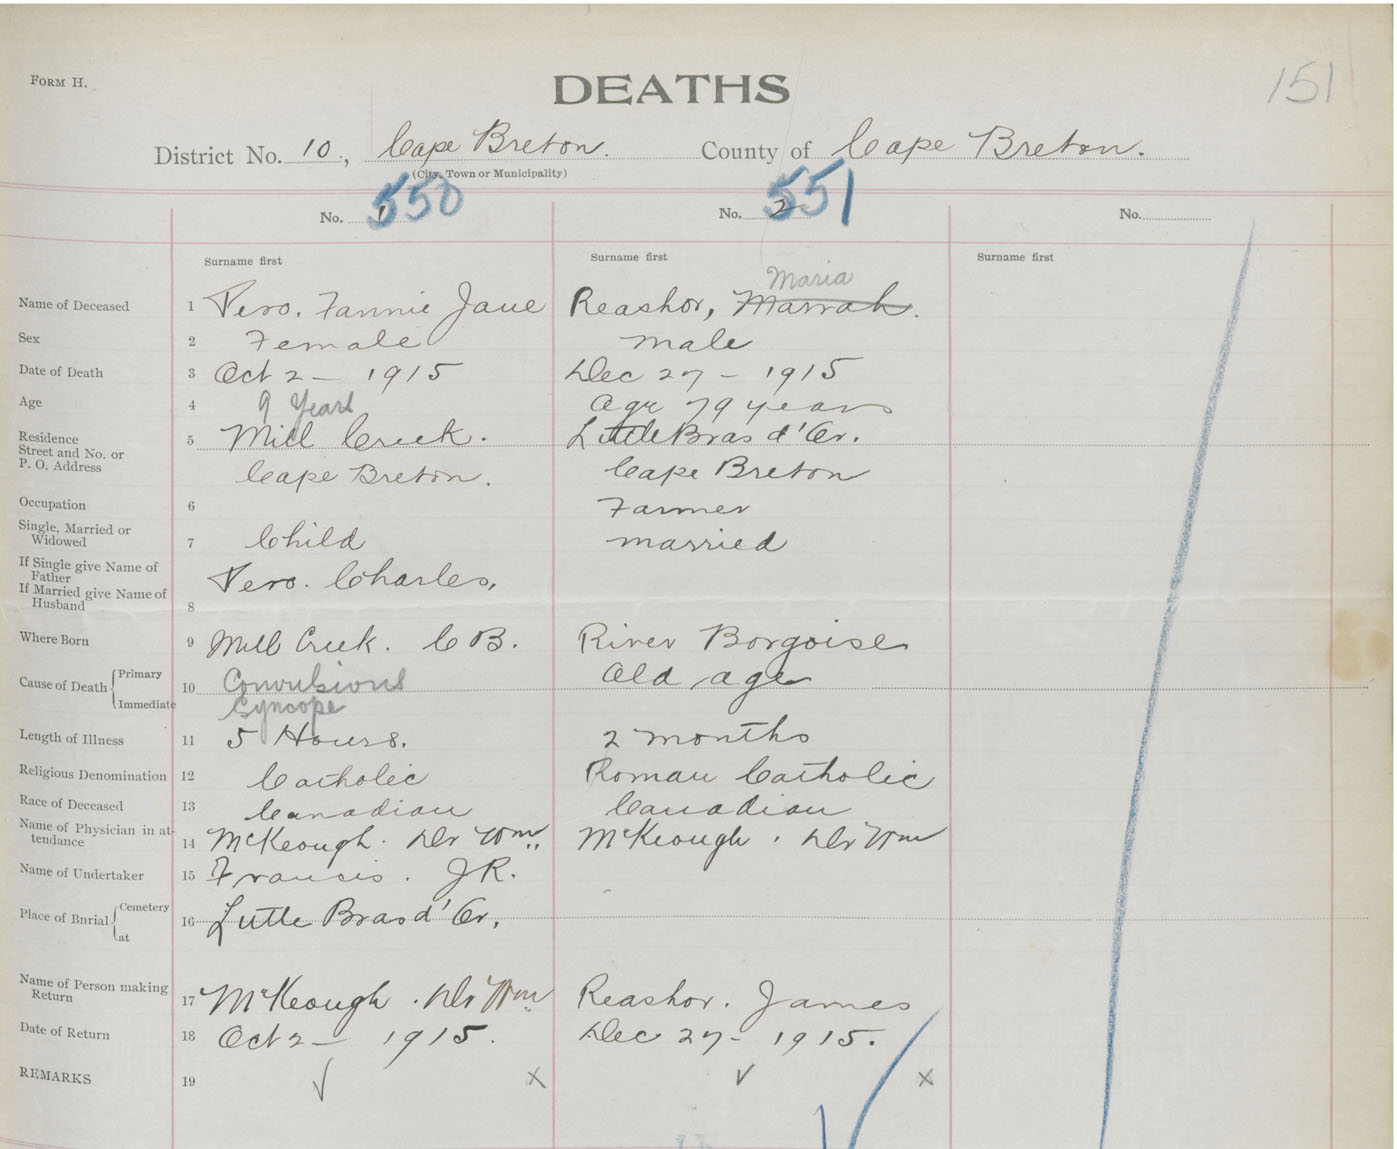 FORM H.
DEATHS
151
District No. 10, Cape Breton. County of Cape Breton.
(City, Town or Municipality)
No. 1 550 No. 2 551 No.
Surname first Surname first Surname first
Maria
Name of Deceased 1 Pero. Fannie Jane Reashor, Marrah.
Sex 2 Female male
Date of Death 3 Oct 2 - 1915 Dec 27 - 1915
Age 4 9 Years age 79 years
Residence Street and No. or P. O. Address 5 Mill Creek. Little Bras d'Or.
Cape Breton. Cape Breton
Occupation 6 Farmer
Single, Married or Widowed 7 Child married
If Single give Name of Father
If Married give Name of Husband 8 Pero. Charles,
Where Born 9 Mill Creek. C B. River Borgoise
Cause of Death Primary Immediate 10 Convulsions Old age
Syncope
Length of Illness 11 5 Hours. 2 months
Religious Denomination 12 Catholic Roman Catholic
Race of Deceased 13 Canadian Canadian
Name of Physician in attendance 14 McKeough. Dr Wm. McKeough. Dr Wm
Name of Undertaker 15 Francis. J R.
Place of Burial Cemetery at 16 Little Bras d'Or.
Name of Person making Return 17 McKeough. Dr Wm. Reashor. James
Date of Return 18 Oct 2 - 1915. Dec 27 - 1915.
REMARKS 19 √ x √ x